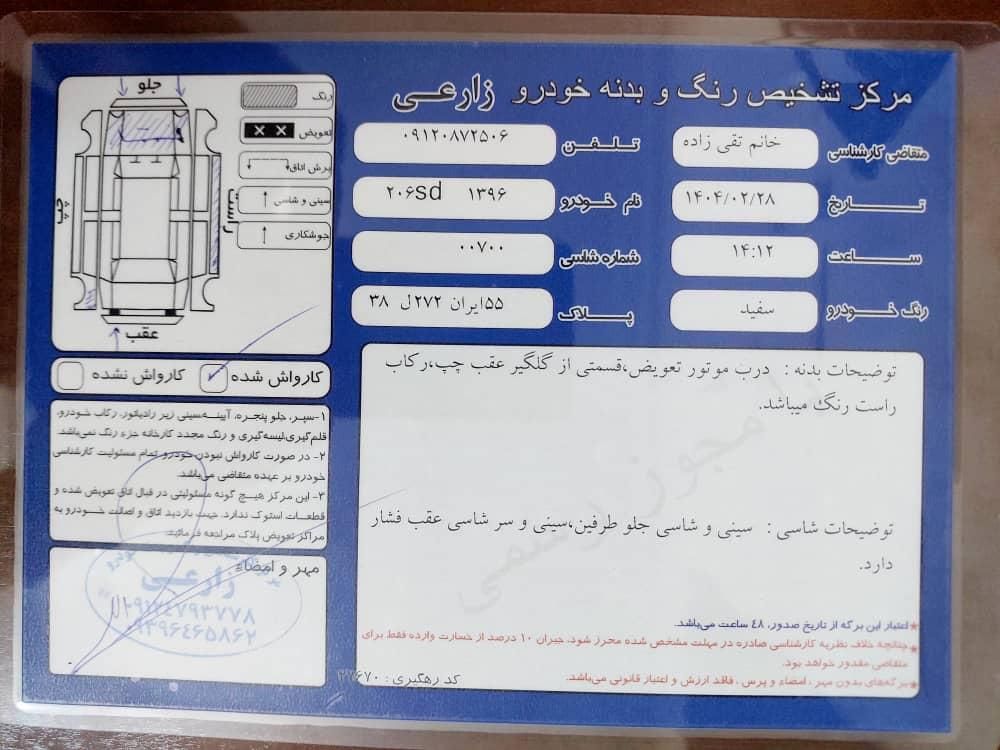 مرکز تشخیص رنگ و بدنه خودرو زارعی
متقاضی کارشناسی خانم تقی زاده
تلفن ۰۹۱۲۰۸۷۲۵۰۶
تاریخ ۱۴۰۴/۰۲/۲۸
نام خودرو ۲۰۶sd ۱۳۹۶
ساعت ۱۴:۱۲
شماره شاسی ۰۰۷۰۰
رنگ خودرو سفید
پلاک ۵۵ایران ۲۷۲ل ۳۸
توضیحات بدنه : درب موتور تعویض،قسمتی از گلگیر عقب چپ،رکاب
راست رنگ میباشد.
توضیحات شاسی : سینی و شاسی جلو طرفین،سینی و سر شاسی عقب فشار
دارد.
*اعتبار این برگه از تاریخ صدور، ۴۸ ساعت می‌باشد.
*چنانچه خلاف نظریه کارشناسی صادره در مهلت مشخص شده محرز شود، جبران ۱۰ درصد از خسارت وارده فقط برای
متقاضی مقدور خواهد بود.
*برگه‌های بدون مهر ، امضاء و پرس ، فاقد ارزش و اعتبار قانونی می‌باشد.
کد رهگیری :
جلو
عقب
راست
چپ
رنگ
تعویض
برش اتاق
سینی و شاسی
جوشکاری
کارواش شده
کارواش نشده
۱-سپر، جلو پنجره، آیینه،سینی زیر رادیاتور، رکاب خودرو،
قلم‌گیری،لیسه‌گیری و رنگ مجدد کارخانه جزء رنگ نمی‌باشد.
۲- در صورت کارواش نبودن خودرو تمام مسئولیت کارشناسی
خودرو بر عهده متقاضی می‌باشد.
۳- این مرکز هیچ گونه مسئولیتی در قبال اتاق تعویض شده و
قطعات استوک ندارد. جهت بازدید اتاق و اصالت خودرو به
مراکز تعویض پلاک مراجعه فرمائید.
مهر و امضاء
زارعی
۰۹۱۲۴۷۹۳۷۷۸
۰۹۳۹۶۴۶۵۸۶۲